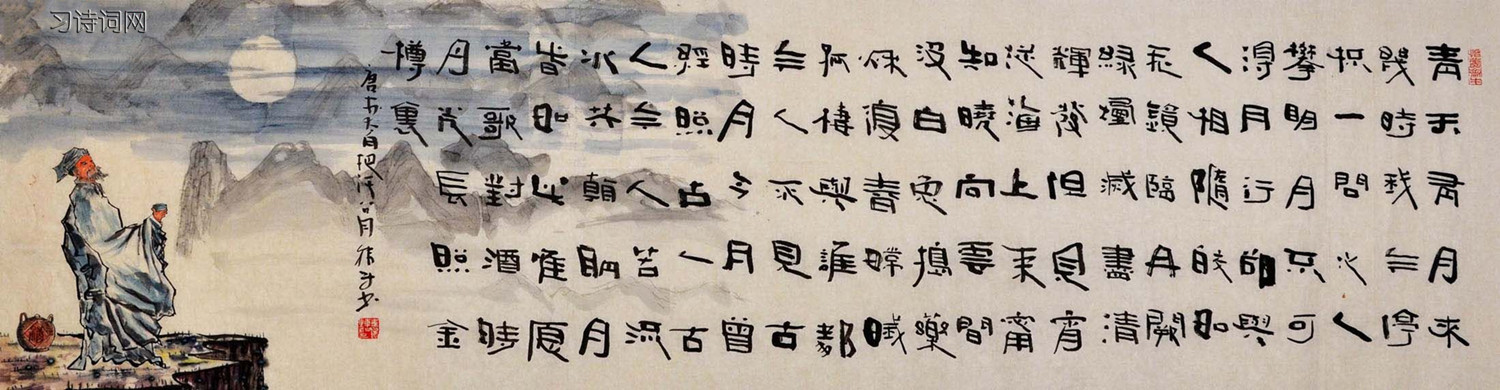 习诗词网
青天有月來
幾時我今停
杯一問之人
攀明月不可
得月行卻與
人相隨皎如
飛鏡臨丹闕
綠煙滅盡清
輝發但見宵
從海上來甯
知曉向雲間
沒白兔搗藥
秋復春嫦娥
孤棲與誰鄰
今人不見古
時月今月曾
經照古人古
人今人若流
水共看明月
皆如此唯愿
當歌對酒時
月光長照金
樽裏
唐李太白把酒問月